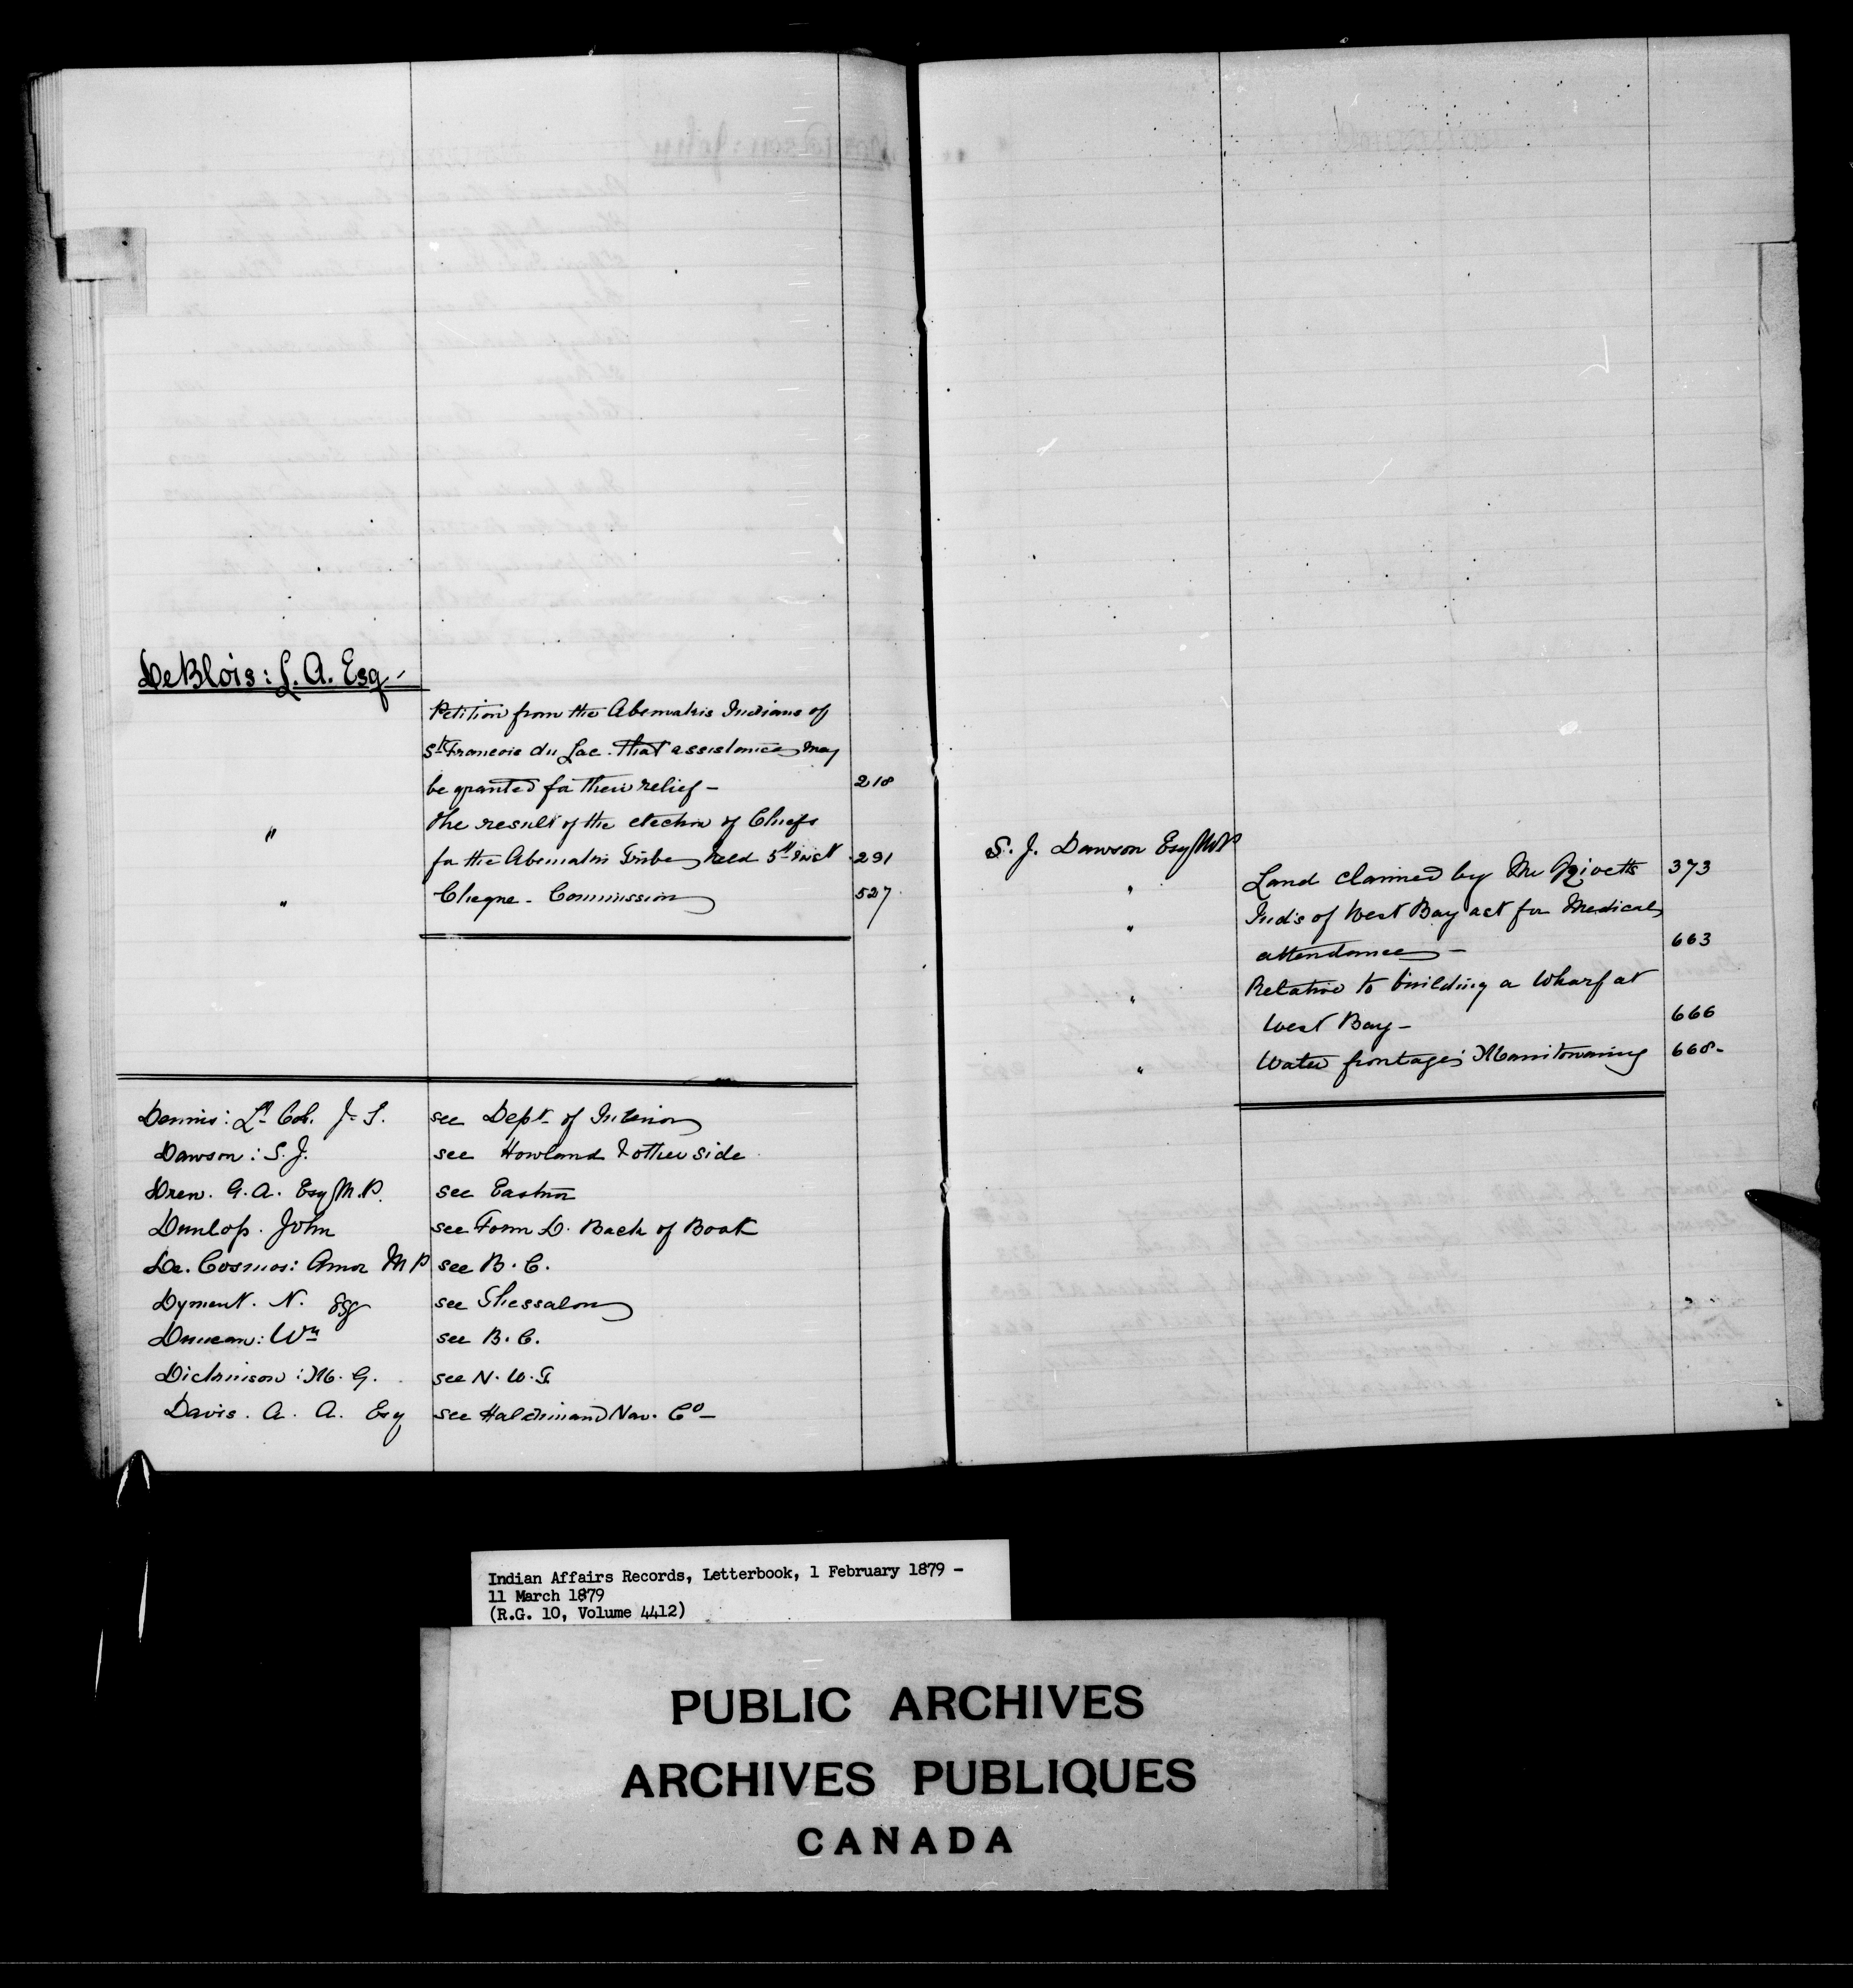 DeBlois: L. A. Esq -
Petition from the Abenakis Indians of
St Francois du Lac. that assistance may
be granted for their relief - 218
" the result of the election of Chiefs
for the Abenakis Tribe, held 5th inst 291
" Cheque - Commission 527
Dennis: Lt Col. J. S. see Dept of Interior
Dawson: S. J. see Howland & other side
Drew. G. A. Esq M.P. see Eastnor
Dunlop. John see Form D. Back of Book
De. Cosmos: Amor M P see B. C.
Dyment. N. Esq see Thessalon
Duncan: Wm see B. C.
Dickinson: M. G. see N. W. T.
Davis. A. A. Esq see Haldimand Nav. Co -
S. J. Dawson Esq M P
" Land claimed by Mr 373
" Inds of West Bay ask for Medical
attendance - 663
" Relative to building a Wharf at
West Bay - 666
" Water frontage; Manitowaning 668 -
Indian Affairs Records, Letterbook, 1 February 1879 -
11 March 1879
(R.G. 10, Volume 4412)
PUBLIC ARCHIVES
ARCHIVES PUBLIQUES
CANADA